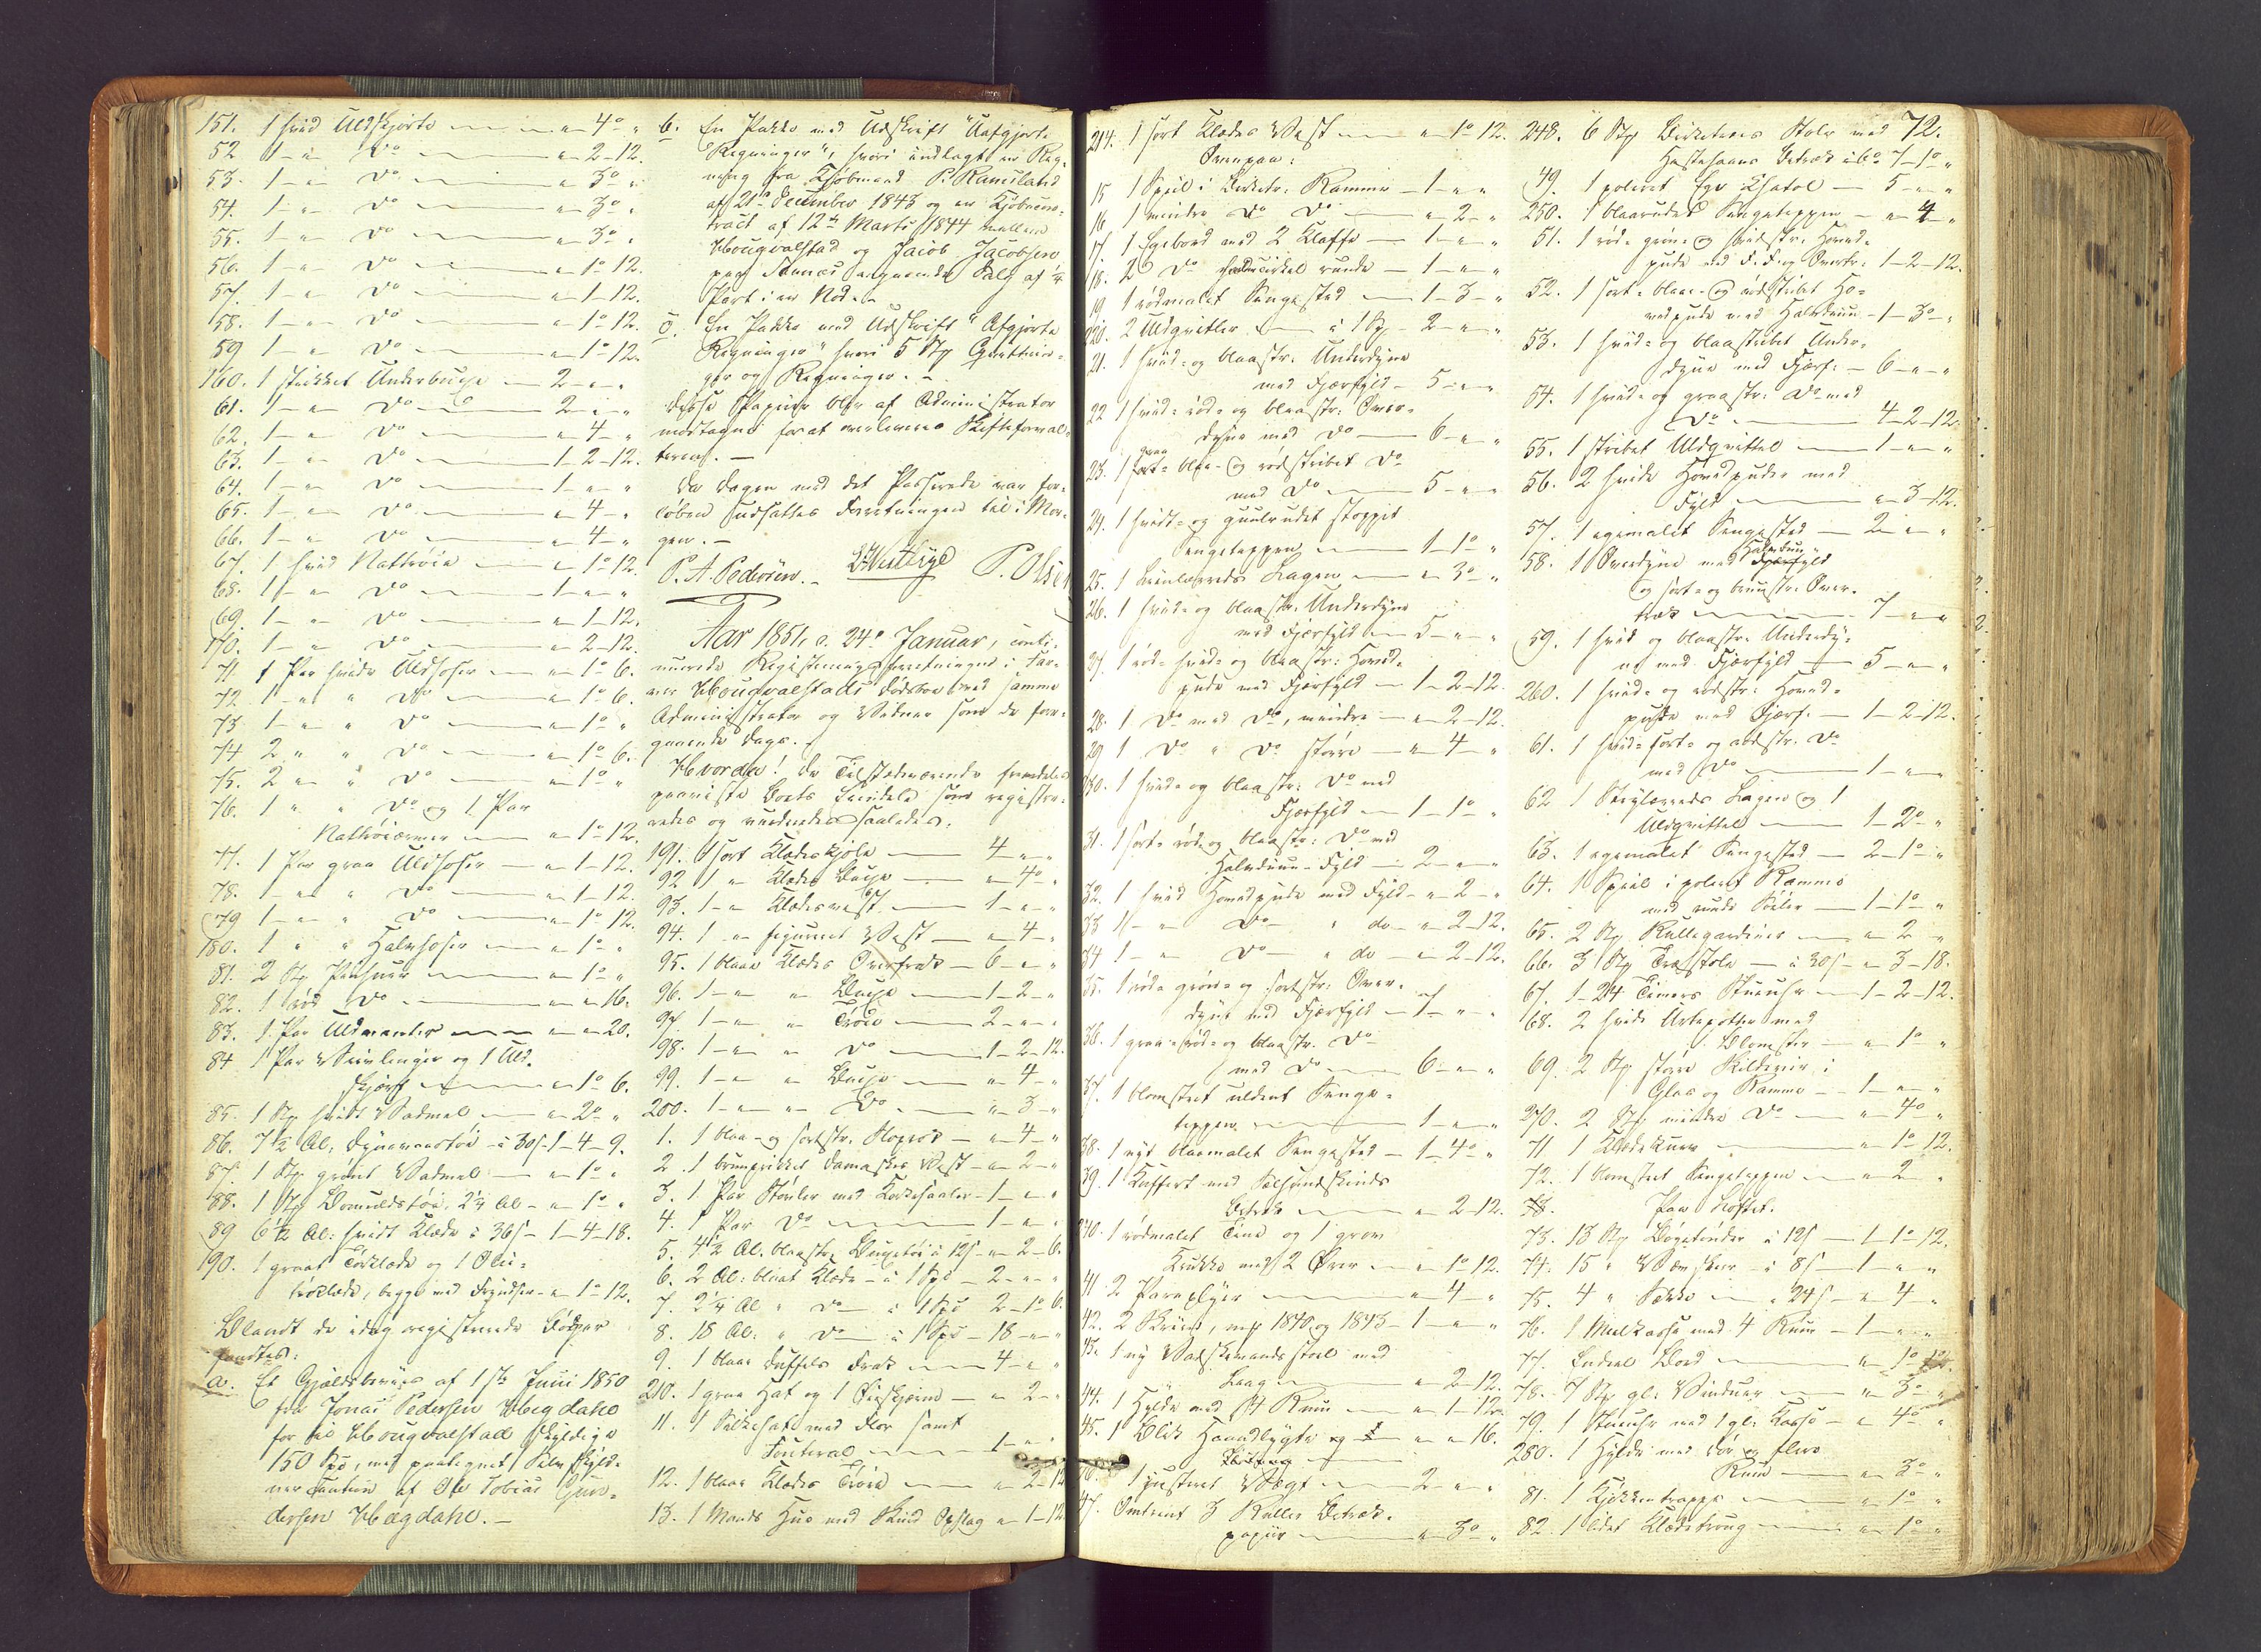 151. 1 hvid Uldskjorte — „ – 4° „
52 1 – „ – D° — „ – 2 – 12.
53. 1 – „ – D° — „ – 3° – „
54. 1 – „ – D° — „ – 3° „
55. 1 – „ – D° — „ – 3° „
56. 1 – „ – D° — „ – 1° 12.
57. 1 – „ – D° — „ – 1 – 12.
58. 1 – „ – D° — „ – 1° 12.
59 1 – „ – D° — „ – 1° 12.
160. 1 strikket Underbuxe — 2 – „ – „
61. 1 – „ – D° — 2 – „ – „
62. 1 – „ – D° — „ – 4 – „
63. 1 – „ – D° — 1 – 2 – 12.
64. 1 – „ – D° — 1 – „ – „
65. 1 – „ – D° — „ – 4 – „
66. 1 – „ – D° — „ – 4 – „
67. 1 hvid Nattrøie — „ – 1° 12.
68. 1 – „ – D° — 1 – „ – „
69. 1 – „ – D° — „ – 1 – 12.
170. 1 – „ – D° — „ – 2 – 12.
71. 1 Par hvide Uldhoser — „ – 1° 6.
72 1 – „ „ D° — „ – 1° 6.
73 1 – „ „ D° — „ – 1° „
74 2 „ „ D° — „ – 1° 6.
75. 2 „ „ D° — „ – 1° „
76. 1 „ „ D° og 1 Par
Nattrøieærmer — „ – 1° 12.
77. 1 Par graa Uldhoser — „ – 1 – 12.
78. 1 – „ „ D° — „ – 1 – 12.
79 1 – „ „ D° — „ – 1° 12.
180. 1 „ „ Halvhoser — „ – 1° „
81. 2 Stk. — „ – 1° „
82. 1 rød D° — „ – „ – 16.
83. 1 Par Uldvanter — „ – „ – 20.
84 1 Par Vævlinger og 1 Uld-
skjærf — „ – 1° 6.
85. 1 Stk. hvidt Vadmel — „ – 2° „
86. 7½ Al. Dynevaarstøi – à 30 s – 1 – 4 – 9.
87. 1 Stk. grønt Vadmel — „ – 1° „
88. 1 Stk. Bomuldstøi, 2¼ Al – „ – 1° „
89 6½ Al: hvidt Klæde à 36 s – 1 – 4 – 18.
190. 1 graat Tørklæde og 1 Silke-
tørklæde, begge med Fryndser – „ – 1° 12.
Blandt de idag registrerede Bøger
fandtes:
a. Et Gjeldsbrev af 1ste Juni 1850
fra Jonas Pedersen Hegdahl
for til Hougvalstad skyldige
150 Spd, med paategnet Selvskyld-
ner Caution af Ole Tobias Gun-
dersen Hægdahl. –
b. En Pakke med Udskrift "Uafgjorte
Regninger", hvori indlagt en Reg-
ning fra Kjøbmand P. Ramsland
af 21de December 1843 og en Kjøbecon-
tract af 12te Marts 1844 mellem
Hougvalstad og Jacob Jacobsen
paa angaaende Salg af ¼
Part i en Nod. –
c. En Pakke med Udskrift "Afgjorte
Regninger" hvori 5 Stk. Qvitterin-
ger og Regninger. –
Disse Papirer blev af Administrator
modtagne for at overleveres Skifteforval-
teren. –
Da Dagen med det Passerede var for-
løben udsattes Forretningen til i Mor-
gen. –
P. A. Pedersen. – P. Olsen
Aar 1851, d. 24de Januar, conti-
nueredes Registreringsforretningen i Far-
ver Hougvalstads Dødsbo med samme
Administrator og Vidner som de fore-
gaaende Dage.
Hvorda! de Tilstedeværende fremdeles
paaviste Boets Eiendele som registre-
redes og vurderedes saaledes:
191. 1 sort Klædeskjole — 4 – „ – „
92 1 „ Klædes Buxe — „ – 4° „
93. 1 – „ Klædesvest — 1 – „ – „
94. 1 „ figureret Vest — „ – 4 – „
95. 1 blaae Klædes Overfrak – 6 – „ – „
96. 1 – „ „ Buxe — 1 – 2 – „
97. 1 – „ „ Trøie — 2 – „ – „
98. 1 – „ „ D° — 1 – 2 – 12.
99. 1 – „ „ Buxe — „ – 4 – „
200. 1 – „ „ D° — „ – 3 – „
1. 1 blaa- og sortstr. Slaprok – „ – 4 – „
2. 1 brunprikket Damaskes Vest – „ – 2 – „
3. 1 Par Støvler med Korksaaler – 1 – „ – „
4. 1 Par D° — 1 – „ – „
5. 4½ Al. blaastr. Buxetøi à 12 s – „ – 2 – 6.
6. 2 Al: blaat Klæde – à 1 Spd – 2 – „ – „
7. 2¼ Al „ D° – à 1 Spd 2 – 1° 6.
8. 18 Al: „ D° – à 1 Spd – 18 – „ – „
9. 1 blaae Duffels Frak — 4 – „ „
210. 1 graa Hat og 1 Øieskjærm – „ – 2 – „
11. 1 Silkehat med Flor samt
Fouteral — 1 – „ „
12. 1 blaae Klædes Trøie — „ – 2 – 12
13. 1 Mands Hue med Skind Opslag „ – 1 – 12
72.
214. 1 sort Klædes Vest — „ – 1° 12.
Ovenpaa:
15 1 Speil i Birketr. Ramme – 1 – „ – „
16 1 mindre D° D° — „ – 2 – „
17. 1 Egebord med 2 Klaffe — 1 – „ – „
18. 2 D° halvcirkel runde — 1 – „ – „
19 1 rødmalet Sengested — 1 – 3 – „
220. 2 Uldqvitler — à 1 Sp – 2 – „ – „
21. 1 hvid- og blaastr: Underdyne
med Fjærfyld – 5 – „ – „
22 1 hvid- rød- og blaastr: Over-
dyne med D° — 6 – „ – „
23. 1 graa- blaa- og rødstribet D°
med D° — 5 – „ – „
24. 1 hvidt- og guulrudet stoppet
Sengeteppe — 1 – 1° „
25. 1 Linlærreds Lagen — „ – 3° – „
26. 1 hvid- og blaastr: Underdyne
med Fjærfyld — 5 – „ – „
27. 1 rød- hvid- og blaastr: Hoved-
pude med Fjærfyld — 1 – 2 – 12.
28. 1 D° med D°, mindre — „ – 2 – 12.
29 1 D° „ D° større — „ – 4 – „
30. 1 hvid- og blaastr: D° med
Fjærfyld — 1 – 1° „
31. 1 sort- rød- og blaastr: D° med
Halvduun-Fyld — 2 – „ – „
32. 1 hvid Hovedpude med Fyld – „ – 2 – „
33 1 – „ D° – „ do – „ – 2 – 12.
34 1 – „ D° – „ do – „ – 2 – 12.
35. 1 rød- grøn- og sortstr: Over-
dyne med Fjærfyld — 7 – „ – „
36. 1 graa- rød- og blaastr. D°
med D° — 6 – „ – „
37. 1 blomstret uldent Senge-
teppe — 1 – „ – „
38. 1 nyt blaamalet Sengested – 1 – 4° – „
39. 1 Kuffert med Sælhundskinds
Betræk — „ – 2 – 12.
240. 1 rødmalet Tine og 1 graa
Krukke med 2 Ører — „ – 1° 12.
41 2 Paraplyer — „ – 4 – „
42. 2 Skrin, mrk 1840 og 1843 – 1 – „ – „
43. 1 ny Vadskevandsstoel med
Laag — „ – 2 – 12.
44. 1 Hylde med 14 Rum — „ – 1 – 12.
45. 1 Blik Haandlygte — „ – „ – 16.
46. 1 justeret Vægt — 2 – „ – „
47. Omtrent 3 Ruller Betræk-
papiir — „ – 3° – „
248. 6 Stk Birketræes Stole med
Hestehaars Betræk à 6° 7 – 1° „
49. 1 poleret Ege Chatol — 5 – „ – „
250. 1 blaarudet Sengeteppe — „ – 4 – „
51. 1 rød- grøn- og hvidstr. Hoved-
pude med Fjærf. og Overtr: 1 – 2 – 12.
52. 1 sort- blaae- og rødstribet Ho-
vedpude med Halvduun – 1 – 3° – „
53. 1 hvid- og blaastribet Under-
dyne med Fjærf: — 6 – „ – „
54. 1 hvid- og graastr: D° med
D° — 4 – 2 – 12.
55. 1 stribet Uldqvittel — 1 – „ – „
56. 2 hvide Hovedpuder med
Fyld — „ – 3 – 12.
57. 1 egemalet Sengested — 2 – „ – „
58. 1 Overdyne med Halvduun Fjærfyld
og sort- og bruunstr. Over-
træk — 7 – „ – „
59. 1 hvid og blaastr. Underdy-
ne med Fjærfyld — 5 – „ – „
260. 1 hvid- og rødstr: Hoved-
pude med Fjærf. — 1 – 2 – 12.
61. 1 hvid- sort- og rødstr. D°
med D° — 1 – „ – „
62 1 Strylærreds Lagen og 1
Uldqvittel — 1 – 2° – „
63. 1 egemalet Sengested — 2 – 1° – „
64. 1 Speil i poleret Ramme
med runde Søiler — 1 – 1° „
65. 2 Stk Rullegardiner — „ – 2 „
66. 3 Stk Træstole — à 30 s – „ – 3 – 18.
67. 1 – 24 Timers Stueuhr — 1 – 2 – 12.
68. 2 hvide Urtepotter med
Blomster — „ – 1° „
69. 2 Stk større Skilderier i
Glas og Ramme — 1 – „ – „
270. 2 Stk mindre D° — „ – 4° „
71 1 Klædekurv — „ – 1° 12.
72. 1 blomstret Sengeteppe — „ – 2 „
73. Paa Loftet.
73. 13 Stk Bøgetønder à 12 s – 1 – 1° – 12.
74. 15 „ – à 8 s – 1 – „ – „
75. 4 „ Sække — à 24 s – „ – 4 – „
76. 1 Meelkasse med 4 Rum – 1 – „ – „
77. Endeel Bord — „ – 1° 12.
78. 7 Stk gl: Vinduer — „ – 3° „
79. 1 Stueuhr med 1 gl: Kasse — „ – 4° „
280. 1 Hylde med Dør og flere
Rum — „ – 3° „
81. 1 Kjøkkentrappe — „ – 1° „
82. 1 lidet Klædetraug — „ – 1° „